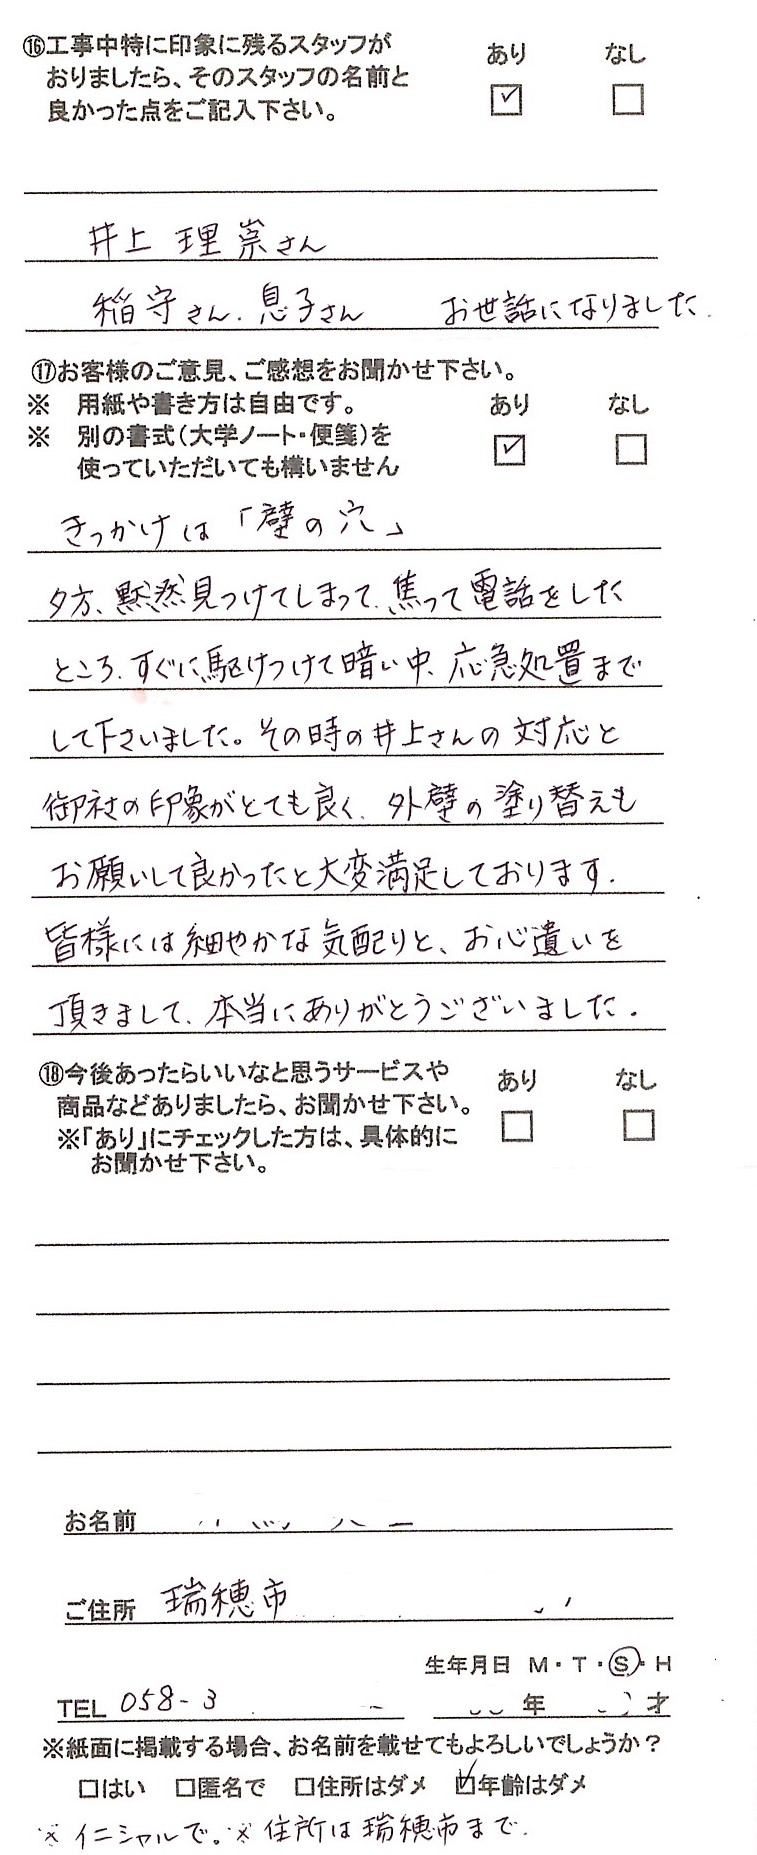 ⑯工事中特に印象に残るスタッフが
おりましたら、そのスタッフの名前と
良かった点をご記入下さい。
あり なし
井上 理崇さん
稲守さん、息子さん お世話になりました.
⑰お客様のご意見、ご感想をお聞かせ下さい。
※ 用紙や書き方は自由です。
あり なし
※ 別の書式(大学ノート・便箋)を
使っていただいても構いません
きっかけは「壁の穴」
夕方、黙然見つけてしまって、焦って電話をした
ところ、すぐに駆けつけて暗い中、応急処置まで
して下さいました。その時の井上さんの対応と
御社の印象がとても良く、外壁の塗り替えも
お願いして良かったと大変満足しております.
皆様には細やかな気配りと、お心遣いを
頂きまして、本当にありがとうございました.
⑱今後あったらいいなと思うサービスや
商品などありましたら、お聞かせ下さい。
※「あり」にチェックした方は、具体的に
お聞かせ下さい。
あり なし
お名前
ご住所 瑞穂市
生年月日 M・T・S・H
TEL 058-3 年 才
※紙面に掲載する場合、お名前を載せてもよろしいでしょうか?
□はい □匿名で □住所はダメ ☑年齢はダメ
※イニシャルで。※住所は瑞穂市まで.